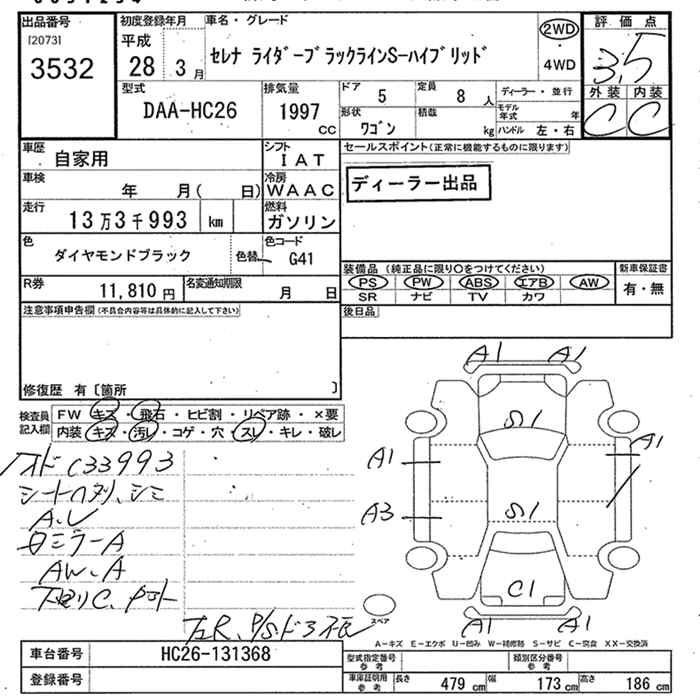 出品番号
[2073]
3532
初度登録年月
平成
28 年 3 月
車名・グレード
セレナ ライダーブラックラインS-ハイブリッド
2WD
・
4WD
評価点
3.5
外装 内装
C C
型式
DAA-HC26
排気量
1997 CC
ドア 5
定員 8 人
形状 ワゴン
積載 kg
ディーラー・並行
モデル年式 年
ハンドル 左・右
車歴
自家用
シフト
IAT
車検
年 月( 日)
冷房
WAAC
走行
13万3千993 km
燃料
ガソリン
色
ダイヤモンドブラック
色替
色コード
G41
R券
11,810 円
名変通知期限
月 日
セールスポイント(正常に機能するものに限ります)
ディーラー出品
装備品 (純正品に限り○をつけてください)
PS PW ABS エアB AW
SR ナビ TV カワ
新車保証書
有・無
後日品
注意事項申告欄(不具合内容等は具体的に記入して下さい)
修復歴 有〔箇所 〕
検査員記入欄
FW キズ・飛石・ヒビ割・リペア跡・×要
内装 キズ・汚レ・コゲ・穴・スレ・キレ・破レ
C33993
シートヘタリ、シミ
A.U
ミラーA
AW、A
下廻りC、
A1 A1
S1
A1
A1
A3
S1
C1
A1 A1
スペア
A-キズ E-エクボ U-凹み W-補修跡 S-サビ C-腐食 XX-交換済
車台番号
HC26-131368
登録番号
型式指定番号
参考
類別区分番号
参考
車庫証明用
参考
長さ 479 cm
幅 173 cm
高さ 186 cm